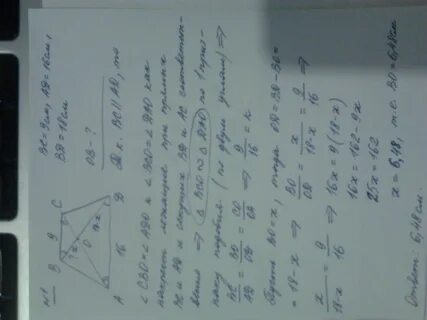 №1
BC = 9 см, AD = 16 см,
BD = 18 см
OB - ?
B 9 C
O
A 16 D
т.к. BC || AD, то
∠CBO = ∠ADO и ∠BCO = ∠DAO как
накрест лежащие при прямых
BC и AD и секущих BD и AC соответст-
венно ⇒ △BCO ∾ △DAO по I приз-
наку подобия (по двум углам) ⇒
BC/AD = BO/OD = CO/OA = 9/16 = k
Пусть BO = x, тогда OD = BD - BO =
= 18 - x ⇒ BO/OD = x/18-x = 9/16 ⇒
x/18-x = 9/16 ⇒ 16x = 9(18-x)
16x = 162 - 9x
25x = 162
x = 6,48, т.е. BO = 6,48 см
Ответ: 6,48 см.